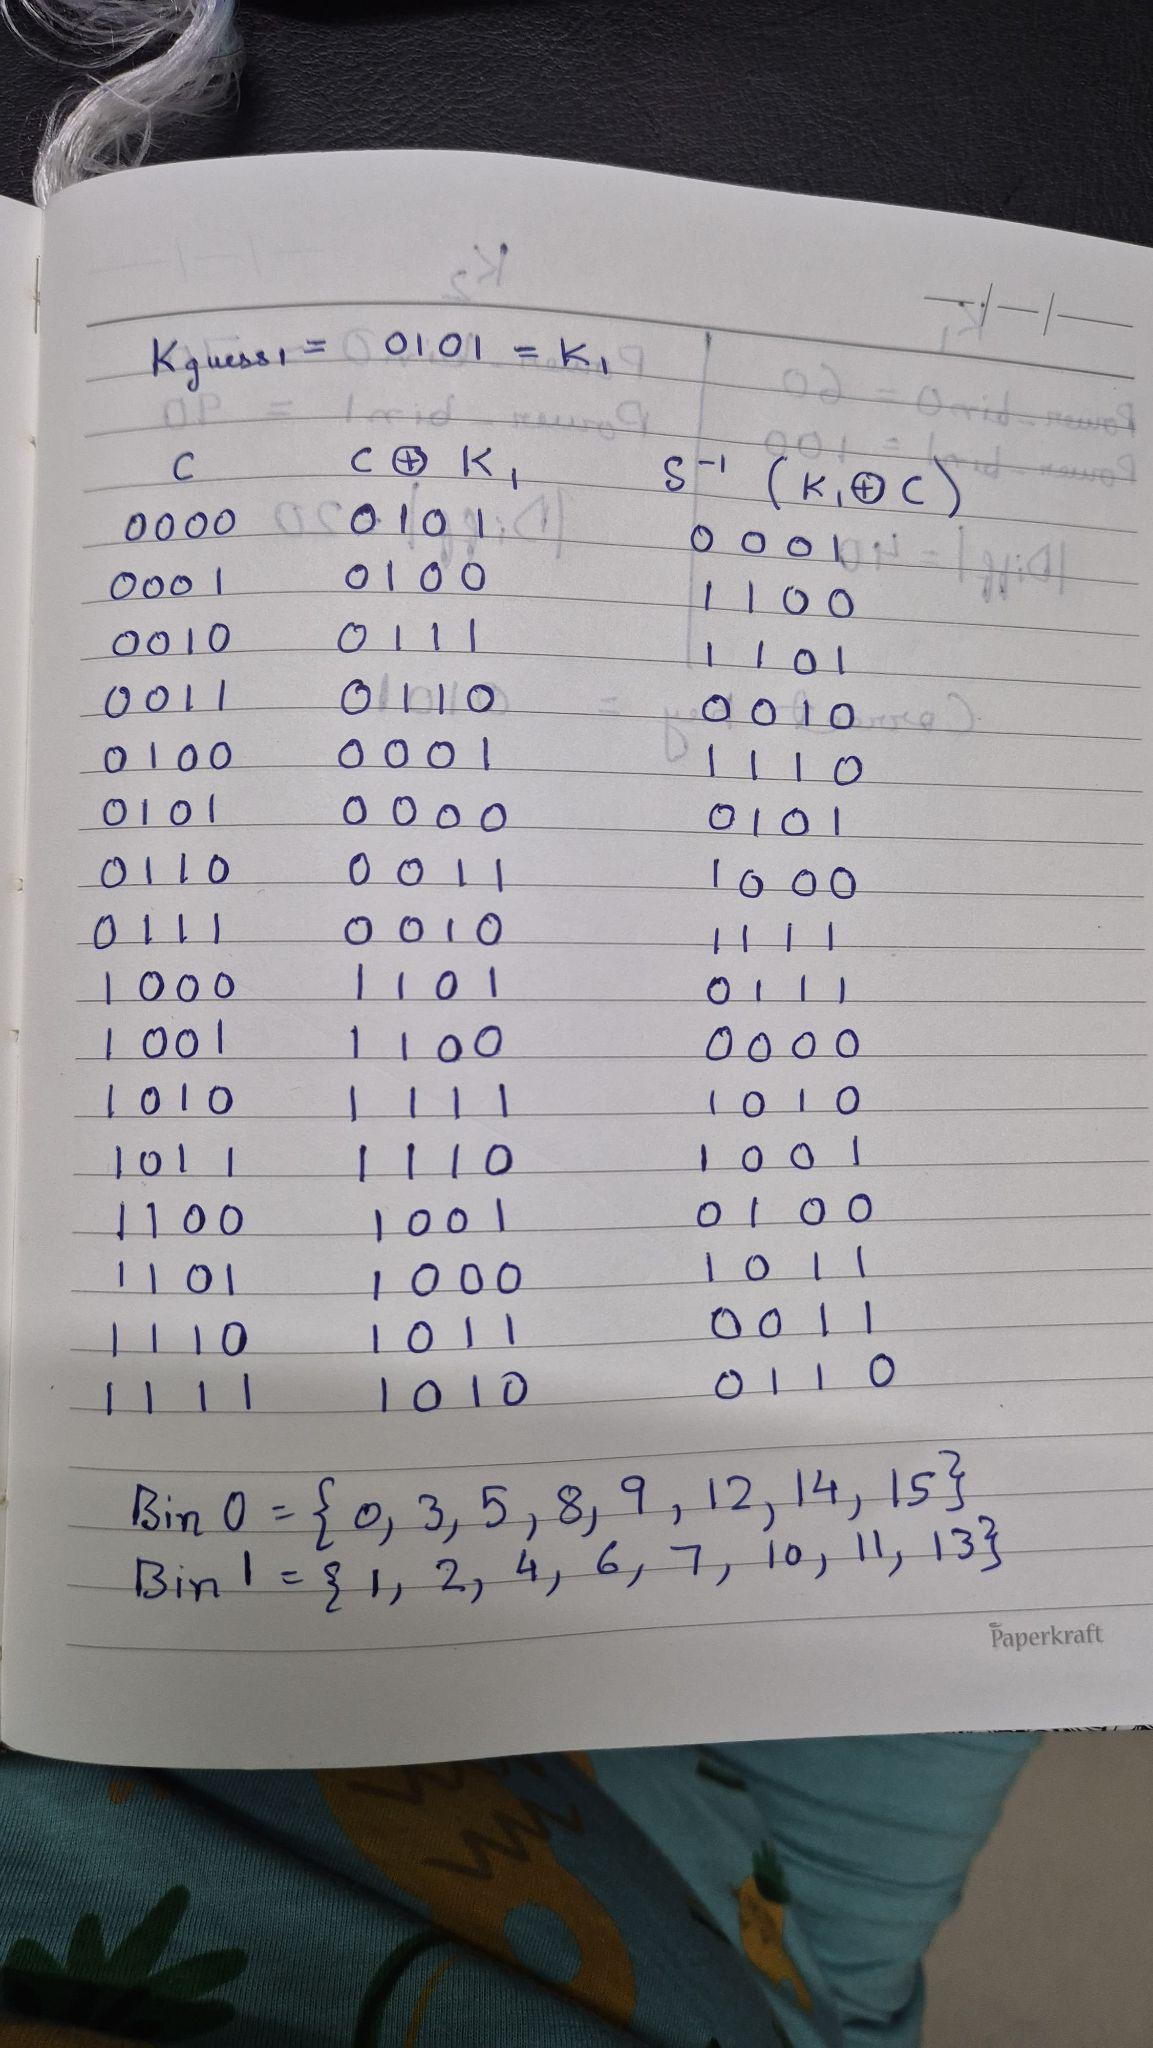 K guess1 = 0101 = K1
C C ⊕ K1 S⁻¹ (K1 ⊕ C)
0000 0101 0001
0001 0100 1100
0010 0111 1101
0011 0110 0010
0100 0001 1110
0101 0000 0101
0110 0011 1000
0111 0010 1111
1000 1101 0111
1001 1100 0000
1010 1111 1010
1011 1110 1001
1100 1001 0100
1101 1000 1011
1110 1011 0011
1111 1010 0110
Bin 0 = {0, 3, 5, 8, 9, 12, 14, 15}
Bin 1 = {1, 2, 4, 6, 7, 10, 11, 13}
Paperkraft